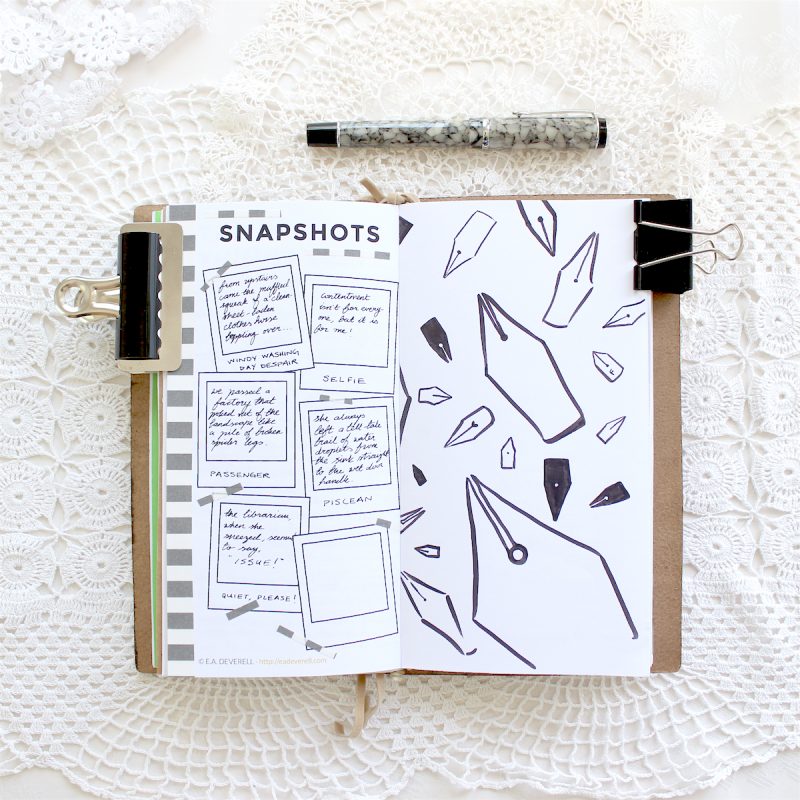 SNAPSHOTS
from upstairs
came the muffled
squeak of a clean-
sheet-laden
clothes horse
toppling over...
WINDY WASHING
DAY DESPAIR
contentment
isn't for every-
one, but it is
for me!
SELFIE
we passed a
factory that
poked out of the
landscape like
a pile of broken
spider legs.
PASSENGER
she always
left a tell tale
trail of water
droplets from
the sink straight
to the wet door
handle
PISCEAN
the librarian,
when she
sneezed, seems
to say,
"ISSUE!"
QUIET, PLEASE!
© E.A. DEVERELL - http://eadeverell.com